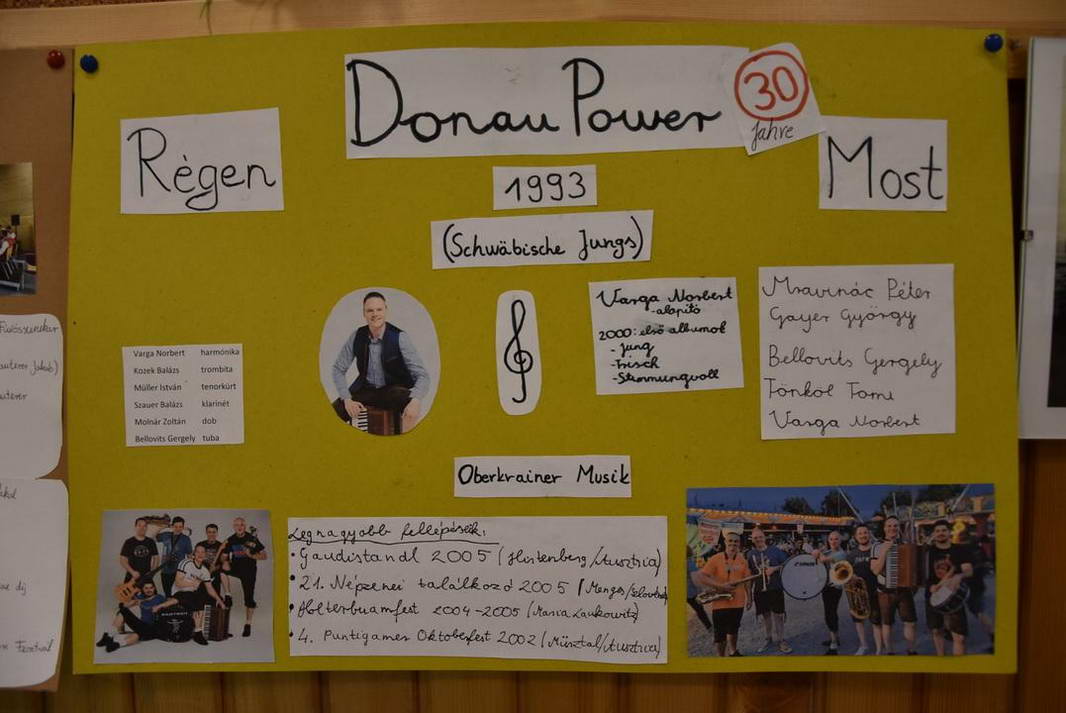 Donau Power
30
Jahre
Régen
Most
1993
(Schwäbische Jungs)
Varga Norbert
-alapító
2000: első albumok
- Jung
- Frisch
- Stimmungvoll
Mravinác Péter
Gayer György
Bellovits Gergely
Tönköl Tomi
Varga Norbert
Varga Norbert harmónika
Kozek Balázs trombita
Müller István tenorkürt
Szauer Balázs klarinét
Molnár Zoltán dob
Bellovits Gergely tuba
Oberkrainer Musik
Legnagyobb fellépéseik:
• Gaudistandl 2005 (Hirtenberg/Ausztria)
• 21. Népzenei találkozó 2005 (Menges/
• Holterbuamfest 2004-2005 (Maria Lankowitz)
• 4. Puntigamer Oktoberfest 2002 (Mürztal/Ausztria)
Jakab)
díj
Fesztivál